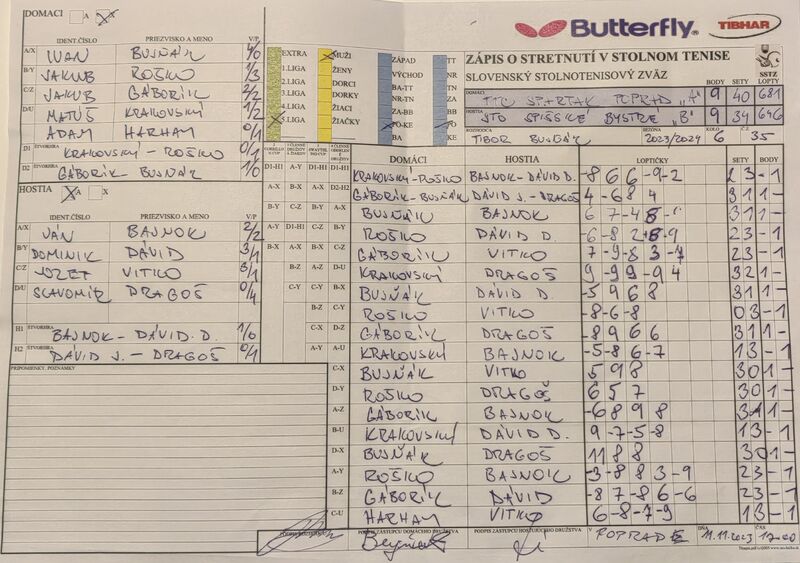 DOMACI A X
Butterfly TIBHAR
IDENT.ČÍSLO PRIEZVISKO A MENO V/P
A/X IVAN BUJŇÁK 4/0
B/Y JAKUB ROŠKO 1/3
C/Z JAKUB GÁBORÍK 2/2
D/U MATÚŠ KRAKOVSKÝ 1/2
ADAM HARHAY 0/1
D1 ŠTVORHRA KRAKOVSKÝ - ROŠKO 0/1
D2 GÁBORÍK - BUJŇÁK 1/0
EXTRA MUŽI ZÁPAD TT
1.LIGA ŽENY VÝCHOD NR
2.LIGA DORCI BA-TT TN
3.LIGA DORKY NR-TN ZA
4.LIGA ŽIACI ZA-BB BB
5.LIGA ŽIAČKY PO-KE PO
BA KE
ZÁPIS O STRETNUTÍ V STOLNOM TENISE
SLOVENSKÝ STOLNOTENISOVÝ ZVÄZ BODY SETY SSTZ LOPTY
DOMÁCI TTC SPARTAK POPRAD "A" 9 40 681
HOSTIA STO SPIŠSKÉ BYSTRÉ "B" 9 34 646
ROZHODCA TIBOR BUJŇÁK SEZÓNA 2023/2024 KOLO 6 Č. 35
HOSTIA A X
IDENT.ČÍSLO PRIEZVISKO A MENO V/P
A/X JÁN BAJNOK 2/2
B/Y DOMINIK DÁVID 3/1
C/Z JOZEF VITKO 3/1
D/U SLAVOMÍR DRAGOŠ 0/4
H1 ŠTVORHRA BAJNOK - DÁVID D. 1/0
H2 ŠTVORHRA DÁVID J. - DRAGOŠ 0/1
PRIPOMIENKY, POZNÁMKY
DOMÁCI HOSTIA LOPTIČKY SETY BODY
D1-H1 KRAKOVSKÝ-ROŠKO BAJNOK-DÁVID D. -8 6 6 -9 -2 2 3 -1
D2-H2 GÁBORÍK - BUJŇÁK DÁVID J. - DRAGOŠ 4 -6 8 4 3 1 1 -
A-X BUJŇÁK BAJNOK 6 7 -4 8 3 1 1 -
B-Y ROŠKO DÁVID D. 2 3 -1
C-Z GÁBORÍK VITKO 7 -9 -8 3 -7 2 3 -1
D-U KRAKOVSKÝ DRAGOŠ 9 -9 9 -9 4 3 2 1 -
B-X BUJŇÁK DÁVID D. -5 9 6 8 3 1 1 -
ROŠKO VITKO -8 -6 -8 0 3 -1
D-Z GÁBORÍK DRAGOŠ -8 9 6 6 3 1 1 -
A-U KRAKOVSKÝ BAJNOK -5 -8 6 -7 1 3 -1
C-X BUJŇÁK VITKO 5 9 8 3 0 1 -
D-Y ROŠKO DRAGOŠ 6 5 7 3 0 1 -
A-Z GÁBORÍK BAJNOK -6 8 9 8 3 1 1 -
B-U KRAKOVSKÝ DÁVID D. 9 -7 -5 -8 1 3 -1
D-X BUJŇÁK DRAGOŠ 11 8 8 3 0 1 -
A-Y ROŠKO BAJNOK -3 -8 8 3 -9 2 3 -1
B-Z GÁBORÍK DÁVID -8 7 -8 6 -6 2 3 -1
C-U HARHAY VITKO 6 -8 -7 -9 1 3 -1
PODPIS ZÁSTUPCU DOMÁCEHO DRUŽSTVA PODPIS ZÁSTUPCU HOSŤUJÚCEHO DRUŽSTVA V POPRADE DŇA 11.11.2023 ČAS 17:00